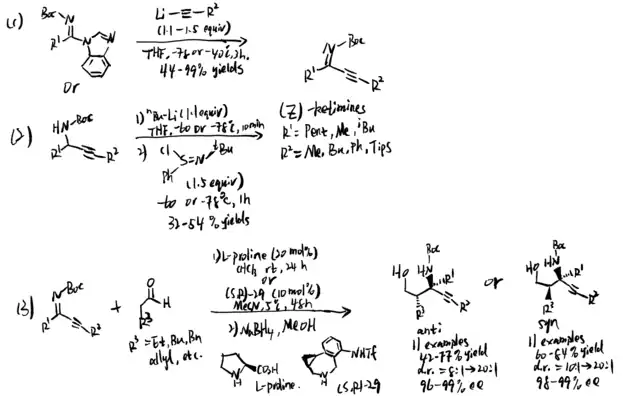 (1)
Boc
N
R¹
N
N
Li-≡-R²
(1.1-1.5 equiv)
THF, -78 or -40℃, 2h.
44-99% yields
N
Boc
R¹
R²
or
(2)
HN
Boc
R¹
R²
1) ⁿBu-Li (1.1 equiv)
THF, -60 or -78℃, 10 min
2) Cl
S=N
ᵗBu
Ph
(1.5 equiv)
-60 or -78℃, 1h
32-54% yields
(Z)-ketimines
R¹ = Pent, Me, ⁱBu
R² = Me, Bu, Ph, Tips
(3)
N
Boc
R¹
R²
+
O
H
R³
R³ = Et, Bu, Bn
allyl, etc.
1) L-proline (20 mol%)
rt, 24h
or
(S,R)-29 (10 mol%)
MeCN, 5℃, 48h
2) NaBH₄, MeOH
N
H
CO₂H
L-proline.
NHTf
N
H
(S,R)-29
Boc
HN
HO
R¹
R²
R³
anti
11 examples
42-77% yield
d.r. = 8:1→20:1
96-99% ee
or
Boc
HN
HO
R¹
R²
R³
syn
11 examples
60-84% yield
d.r. = 10:1→20:1
98-99% ee